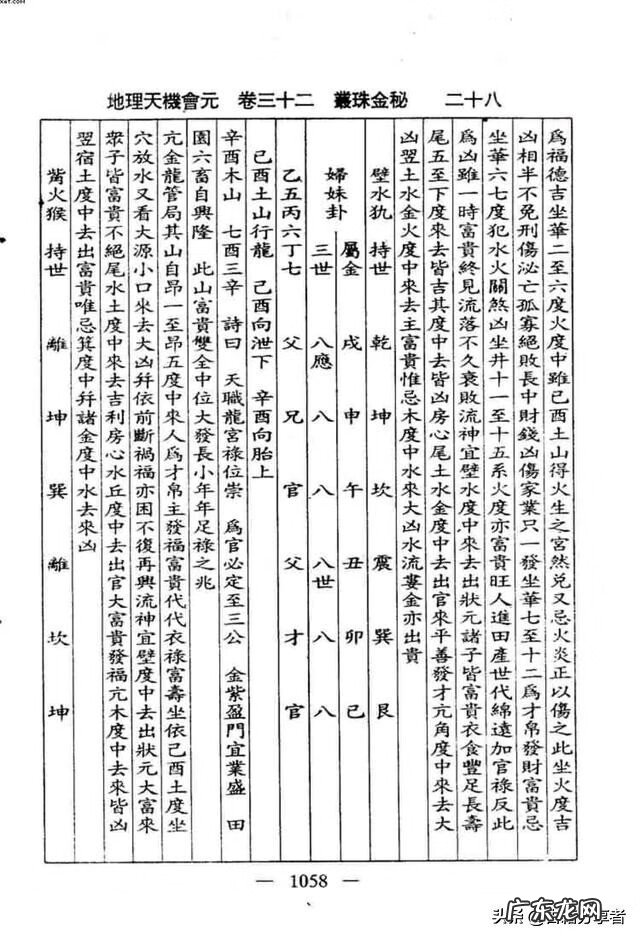 地理天機會元 卷三十二 叢珠金秘 二十八
爲福德吉坐華二至六度火度中雖己酉土山得火生之宮然兑又忌火炎正以傷之此坐火度吉
凶相半不免刑傷泌亡孤寡絕敗長中財錢凶傷家業只一發坐華七至十二爲才帛發財富貴忌
坐華六七度犯水火關煞凶坐井十一至十五系火度亦富貴旺人進田產世代綿遠加官祿反此
爲凶雖一時富貴終見流落不久衰敗流神宜壁水度中來去出狀元諸子皆富貴衣食豐足長壽
尾五至下度來去皆吉其度中去皆凶房心尾土水金度中去出官來平善發才亢角度中來去大
凶翌土水金火度中來去主富貴惟忌木度中水來大凶水流婁金亦出貴
壁水犰 持世 乾 坤 坎 震 巽 艮
屬金 戌 申 午 丑 卯 巳
婦妹卦 三世 八應 八 八 八世 八 八
乙五丙六丁七 父 兄 官 父 才 官
己酉土山行龍 己酉向泄下 辛酉向胎上
辛酉木山 七酉三辛 詩曰 天職龍宮祿位崇 爲官必定至三公 金紫盈門宜業盛 田
園六畜自興隆 此山富貴雙全中位大發長小年年足祿之兆
亢金龍管局其山自昂一至昂五度中來人爲才帛主發福富貴代代衣祿富壽坐依己酉土度坐
穴放水又看大源小口來去大凶幷依前斷禍福亦困不復再興流神宜壁度中去出狀元大富來
衆子皆富貴不絕尾水土度中來去吉利房心水丘度中去出官大富貴發福亢木度中去來皆凶
翌宿土度中去出富貴唯忌箕度中幷諸金度中水去來凶
觜火猴 持世 離 坤 巽 離 坎 坤
— 1058 —
头条
广东龙网